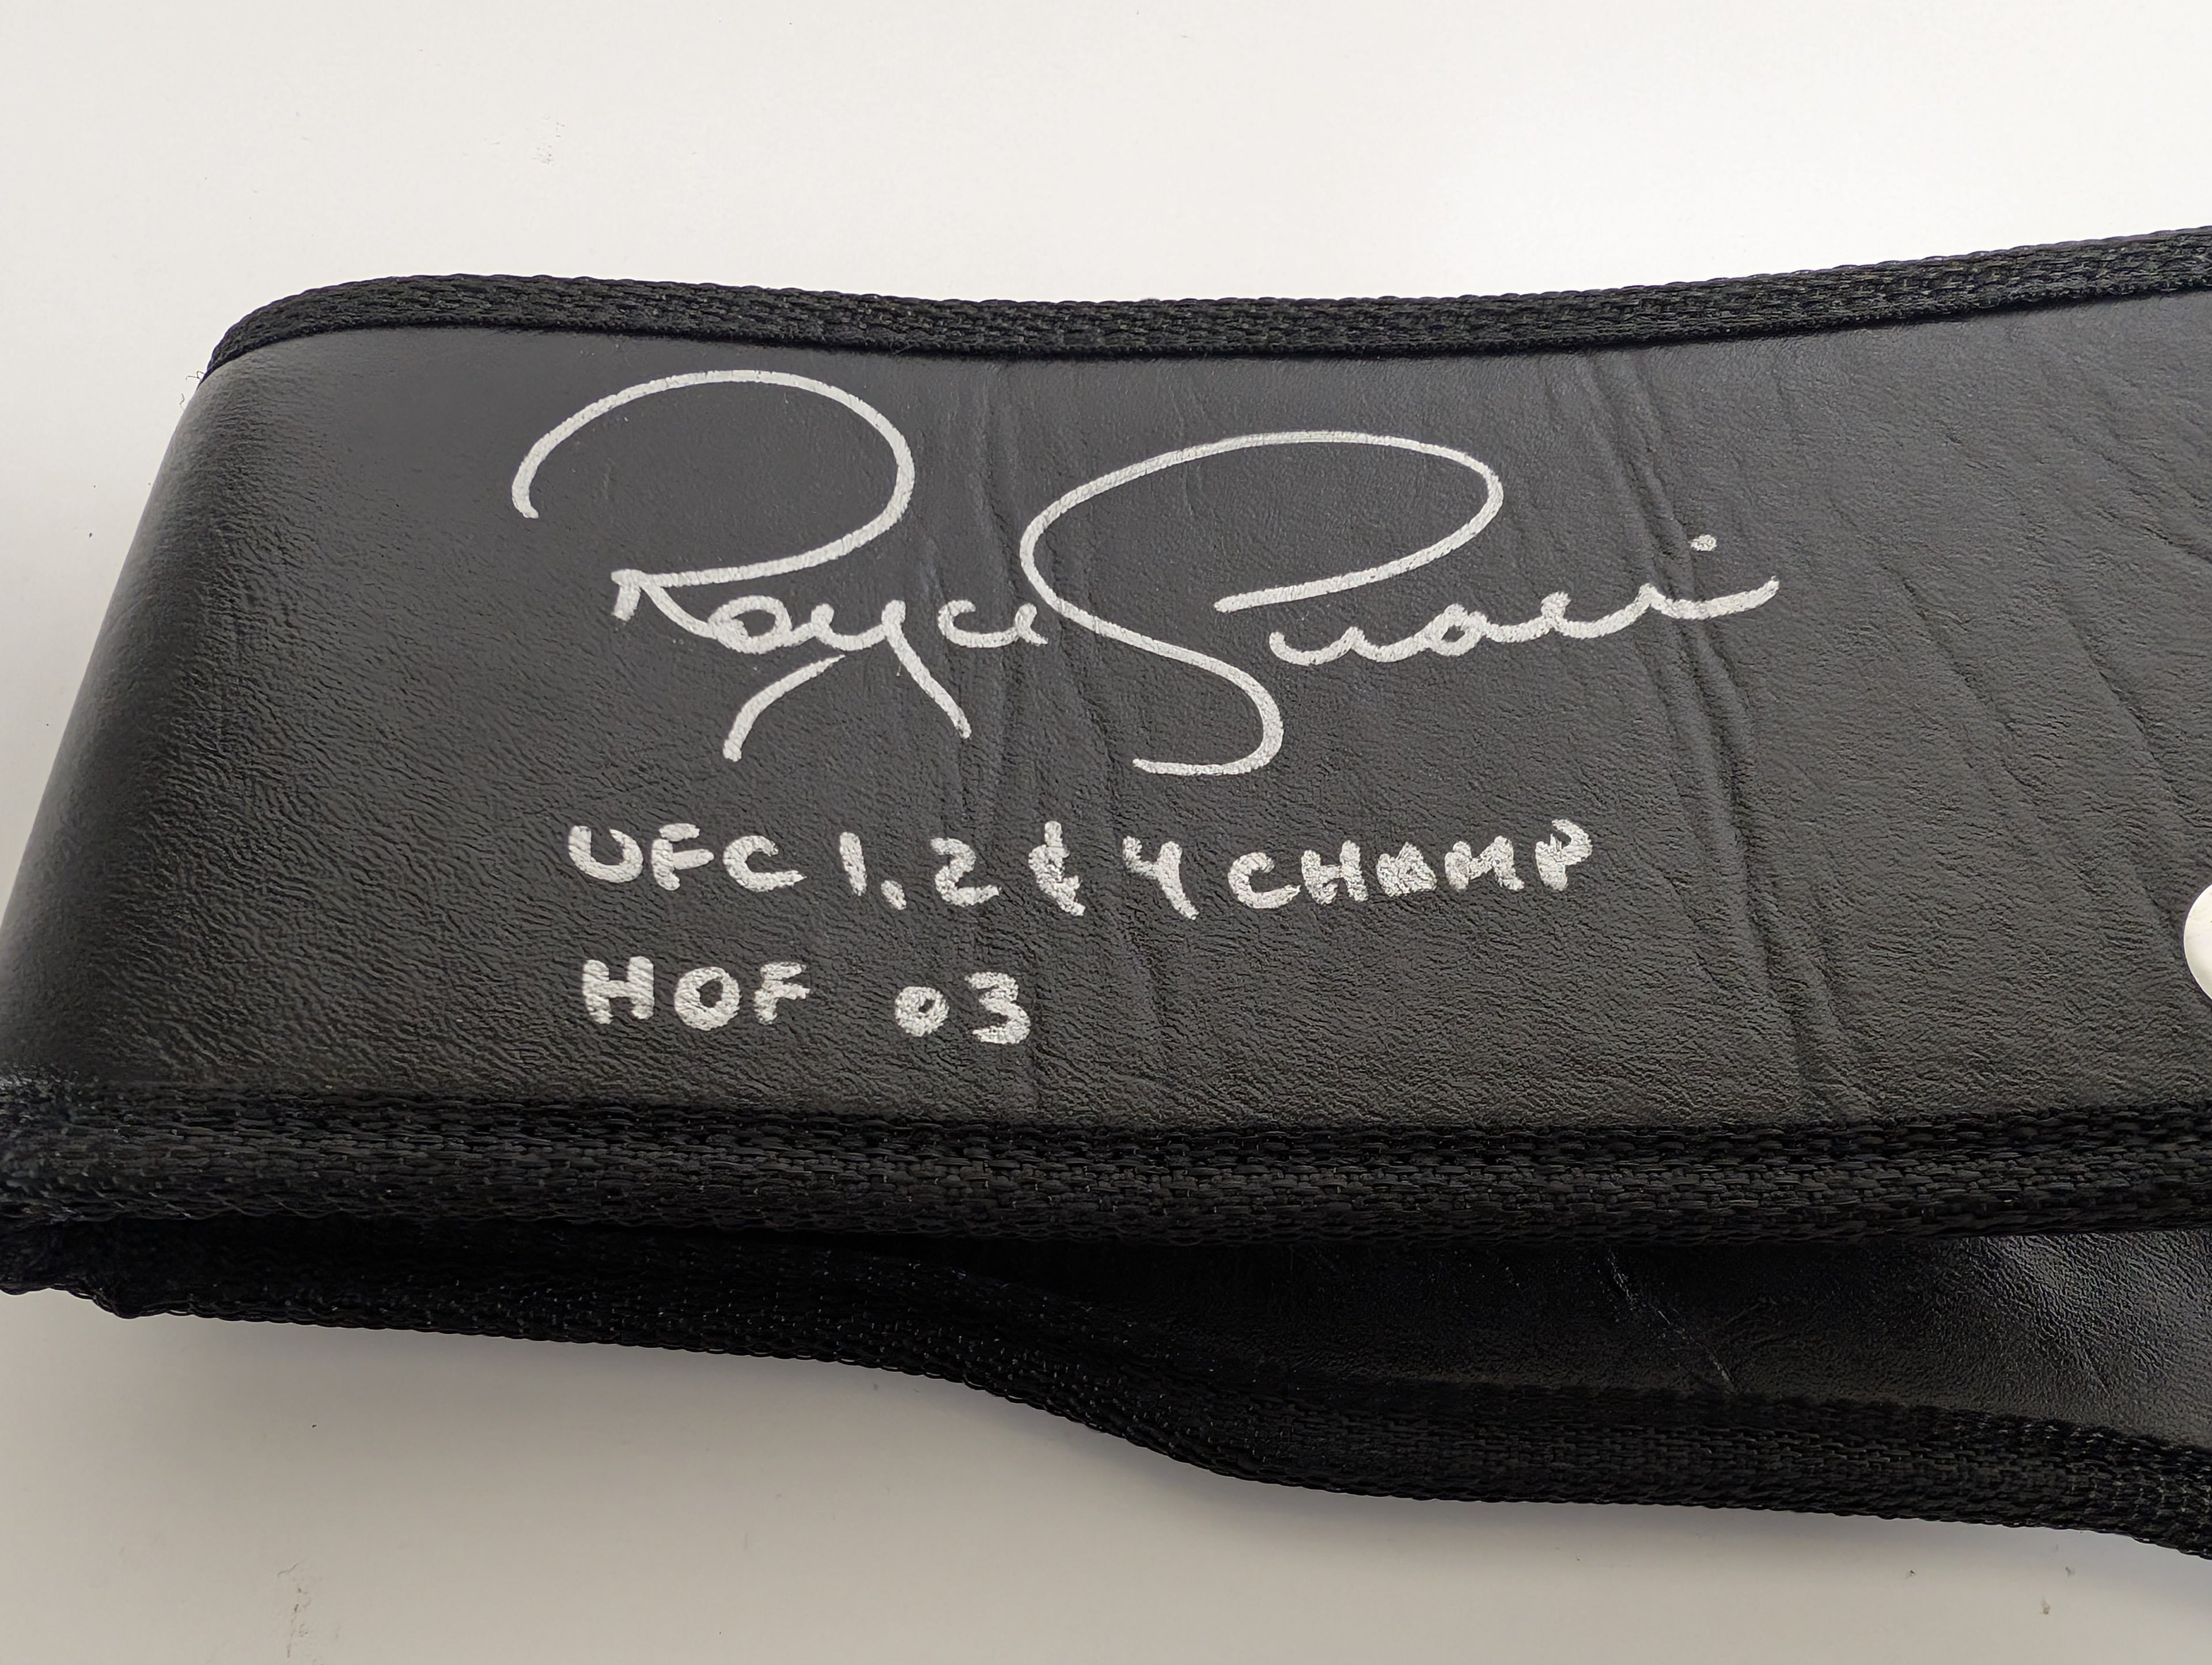 Royce Gracie
UFC 1, 2 & 4 CHAMP
HOF 03